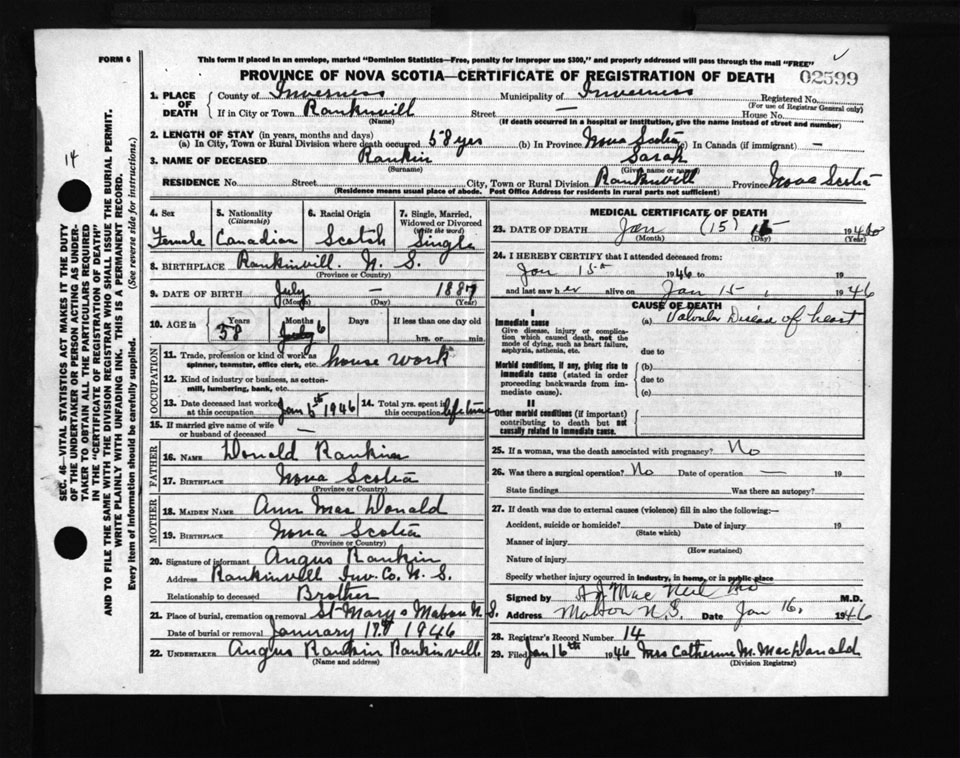 FORM 6
This form if placed in an envelope, marked "Dominion Statistics—Free, penalty for improper use $300," and properly addressed will pass through the mail "FREE"
PROVINCE OF NOVA SCOTIA—CERTIFICATE OF REGISTRATION OF DEATH
02599
1. PLACE OF DEATH County of Inverness Municipality of Inverness Registered No.
(For use of Registrar General only)
If in City or Town Rankinvill Street — House No.
(Name) (If death occurred in a hospital or institution, give the name instead of street and number)
2. LENGTH OF STAY (in years, months and days)
(a) In City, Town or Rural Division where death occurred 58 yrs (b) In Province Nova Scotia (c) In Canada (if immigrant) —
3. NAME OF DECEASED Rankin Sarah
(Surname) (Given name or names)
RESIDENCE No. Street City, Town or Rural Division Rankinvill Province Nova Scotia
(Residence means usual place of abode. Post Office Address for residents in rural parts not sufficient)
14
SEC. 46—VITAL STATISTICS ACT MAKES IT THE DUTY
OF THE UNDERTAKER OR PERSON ACTING AS UNDER-
TAKER TO OBTAIN ALL THE PARTICULARS REQUIRED
IN THE "CERTIFICATE OF REGISTRATION OF DEATH"
AND TO FILE THE SAME WITH THE DIVISION REGISTRAR WHO SHALL ISSUE THE BURIAL PERMIT.
WRITE PLAINLY WITH UNFADING INK. THIS IS A PERMANENT RECORD.
Every item of Information should be carefully supplied. (See reverse side for instructions.)
4. Sex 5. Nationality 6. Racial Origin 7. Single, Married,
(Citizenship) Widowed or Divorced
(Write the word)
Female Canadian Scotch Single
8. BIRTHPLACE Rankinvill. N. S.
(Province or Country)
9. DATE OF BIRTH July — 1887
(Month) (Day) (Year)
10. AGE in Years Months Days If less than one day old
58 July 6 hrs. or min.
OCCUPATION
11. Trade, profession or kind of work as house work
spinner, teamster, office clerk, etc.
12. Kind of industry or business, as cotton-
mill, lumbering, bank, etc.
13. Date deceased last worked at this occupation Jan 6th 1946 14. Total yrs. spent in this occupation lifetime
15. If married give name of wife or husband of deceased —
FATHER
16. NAME Donald Rankin
17. BIRTHPLACE Nova Scotia
(Province or Country)
MOTHER
18. MAIDEN NAME Ann MacDonald
19. BIRTHPLACE Nova Scotia
(Province or Country)
20. Signature of informant Angus Rankin
Address Rankinvill Inv. Co. N. S.
Relationship to deceased Brother
21. Place of burial, cremation or removal St Marys Mabou N. S.
Date of burial or removal January 17th 1946
22. UNDERTAKER Angus Rankin Rankinvill
(Name and address)
MEDICAL CERTIFICATE OF DEATH
23. DATE OF DEATH Jan (15) 1946
(Month) (Day) (Year)
24. I HEREBY CERTIFY that I attended deceased from:
Jan 15th 1946 to 19
and last saw her alive on Jan 15 1946
CAUSE OF DEATH
I
Immediate cause (a) Valvular Disease of heart
Give disease, injury or complica-
tion which caused death, not the
mode of dying, such as heart failure,
asphyxia, asthenia, etc. due to
Morbid conditions, if any, giving rise to (b)
immediate cause (stated in order due to
proceeding backwards from im-
mediate cause). (c)
II
Other morbid conditions (if important)
contributing to death but not
causally related to immediate cause.
25. If a woman, was the death associated with pregnancy? No
26. Was there a surgical operation? No Date of operation — 19
State findings Was there an autopsy?
27. If death was due to external causes (violence) fill in also the following:—
Accident, suicide or homicide? Date of injury 19
(State which)
Manner of injury
(How sustained)
Nature of injury
Specify whether injury occurred in industry, in home, or in public place
Signed by MacNeil MD M.D.
Address Mabou N.S. Date Jan 16, 1946
28. Registrar's Record Number 14
29. Filed Jan 16th 1946 Mrs Catherine M. MacDonald
(Division Registrar)